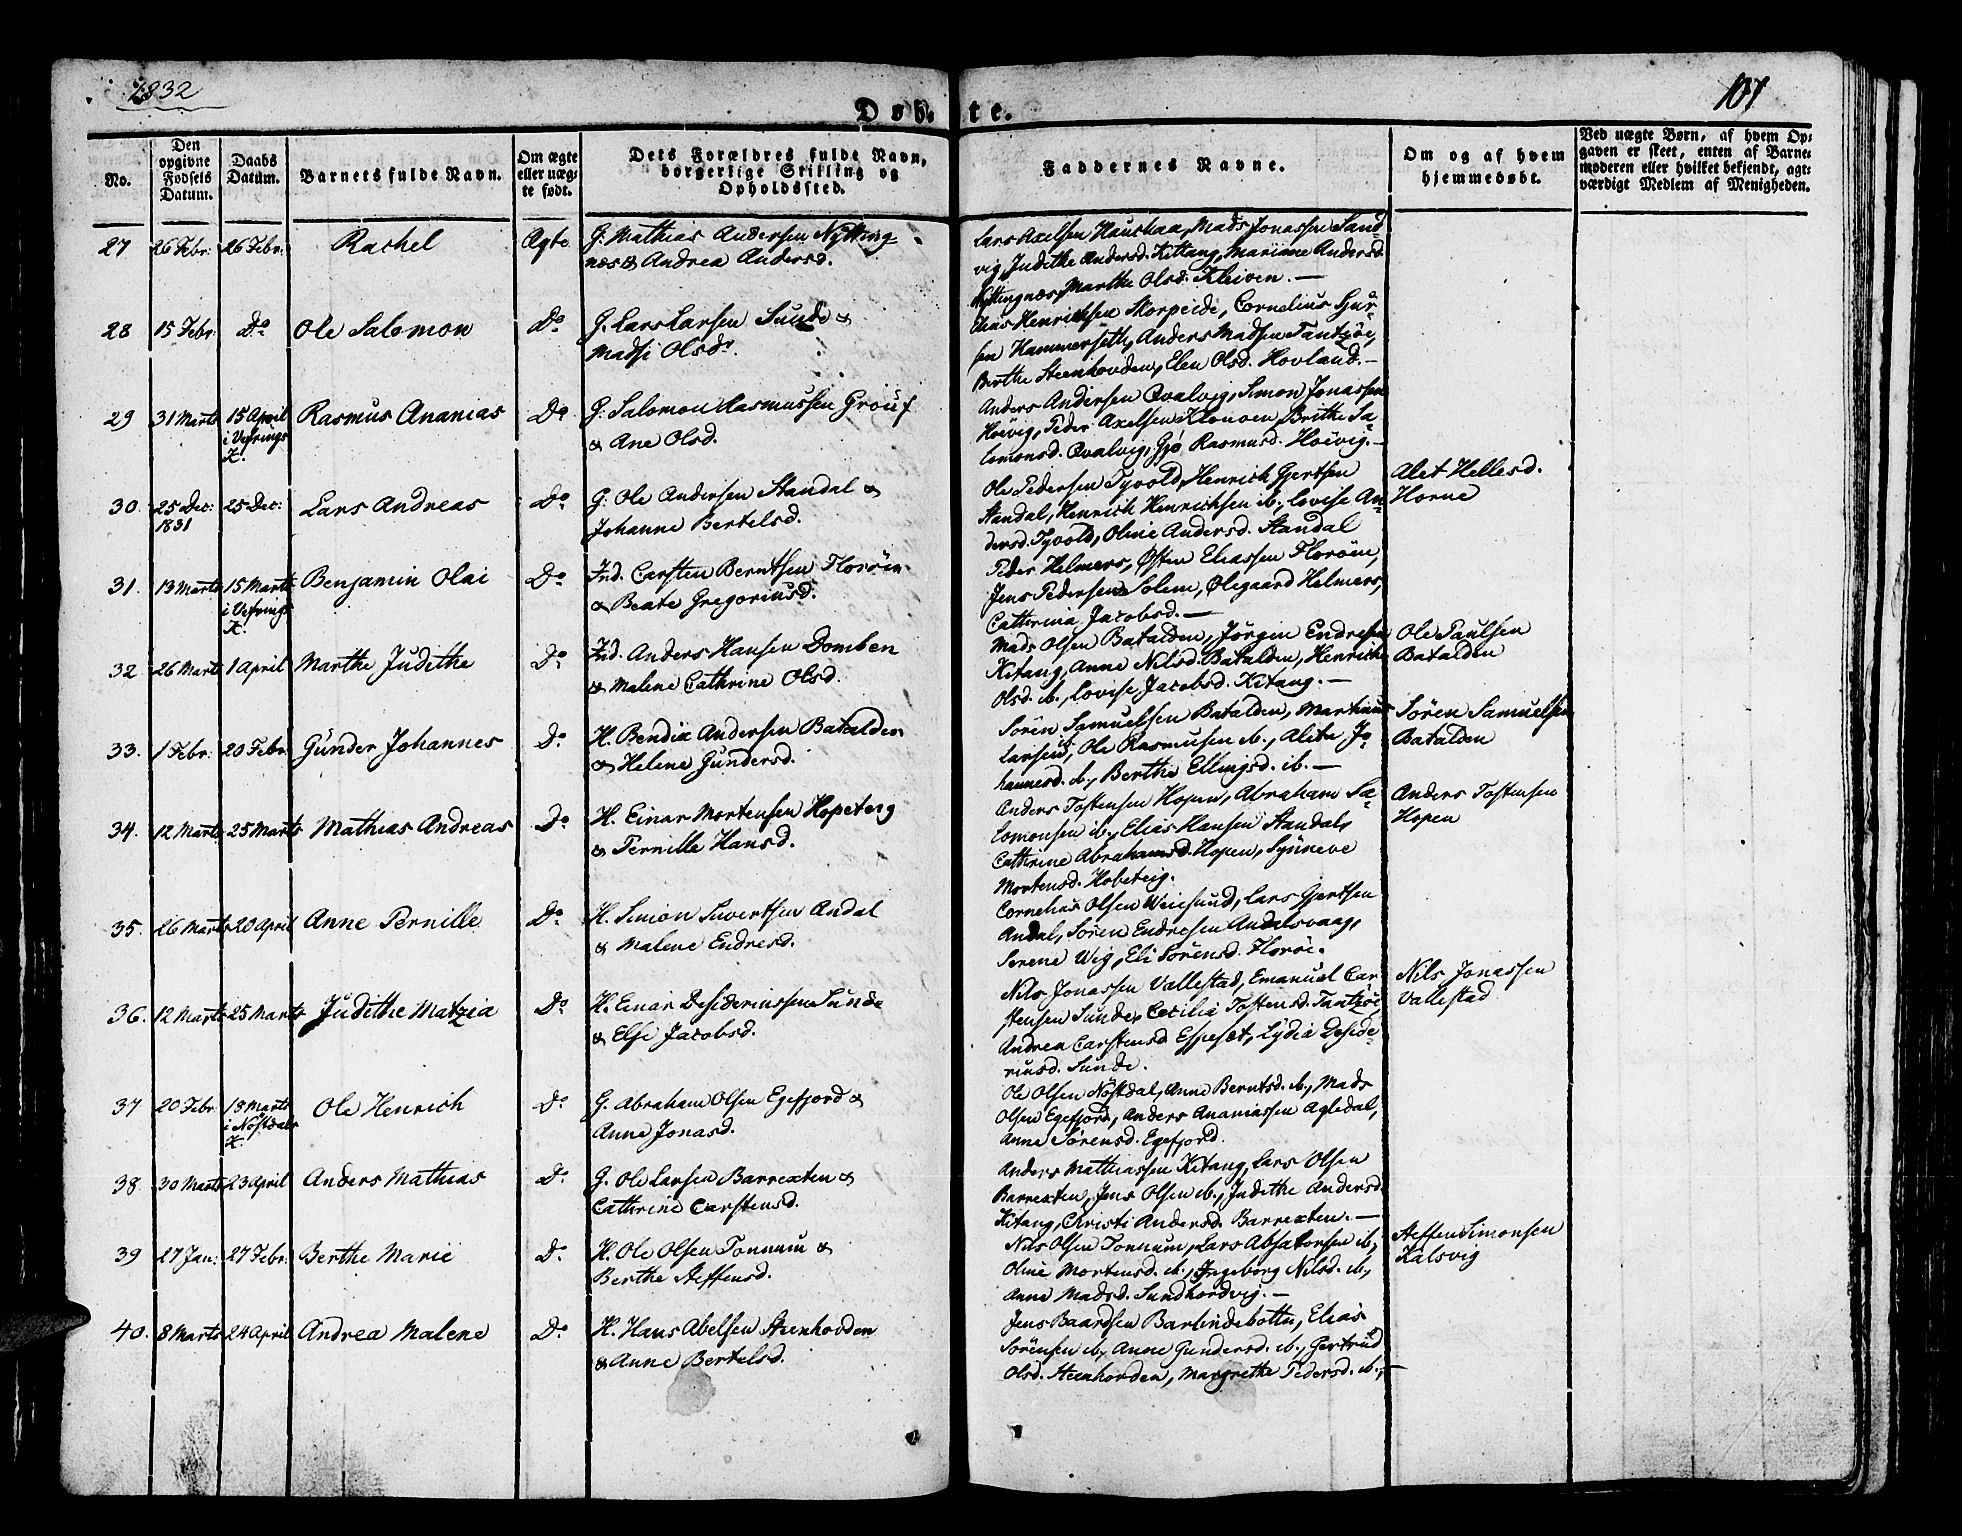 1832
107
Døb-
te.
No.
Den opgivne Fødsels Datum.
Daabs Datum.
Barnets fulde Navn.
Om ægte eller uægte født.
Dets Forældres fulde Navn, borgerlige Stilling og Opholdssted.
Faddernes Navne.
Om og af hvem hjemmedøbt.
Ved uægte Børn, af hvem Opgaven er skeet, enten af Barnemoderen eller hvilket bekjendt, agtværdigt Medlem af Menigheden.
27 26 Febr: 26 Febr: Rachel Ægte G. Mathias Andersen Nytting-
næs & Andrea Andersd.
Lars Axelsen Haushaa, Mads Jonassen Sand-
vig, Judithe Andersd. Kittang, Mariane Andersd.
Nyttingnæs, Marthe Olsd. Kleiven. —
28 15 Febr: Do Ole Salomon Do G. Lars Larsen Sunde &
Madsi Olsdr.
Elias Henrichsen Skorpeide, Cornelius Sjur-
sen Hammerseth, Anders Madsen Tantzøe,
Berthe Steenhovden, Elen Olsd. Hovland. —
29 31 Marts 15 April i Vefrings K. Rasmus Ananias Do G. Salomon Rasmussen Grouf
& Ane Olsd.
Anders Andersen Qvalvig, Simon Jonassen
Høivig, Peder Axelsen Klonven, Brithe Sa-
lomonsd. Qvalvig, Gjø Rasmusd. Høivig. —
30. 25 Dec: 1831 25 Dec: Lars Andreas Do G. Ole Andersen Standal &
Johanne Bertelsd.
Ole Pedersen Tyvold, Henrich Gjertsen
Standal, Henrich Henrichsen ib., Lovise An-
dersd. Tyvold, Oline Andersd. Standal
Alet Hellesd.
Horne
31. 13 Marts 15 Marts i Vefrings K. Benjamin Olai Do Ind. Carsten Berntsen Florøen
& Beate Gregoriusd.
Peder Helmers, Østen Eliassen Florøen,
Jens Pedersen Solem, Ølegaard Helmers,
Cathrina Jacobsd. —
32 26 Marts 1 April Marthe Judithe Do Ind. Anders Hansen Domben
& Malene Cathrine Olsd.
Mads Olsen Batalden, Jørgen Endresen
Kitang, Anne Nilsd. Batalden, Henriche
Olsd. ib., Lovise Jacobsd. Kitang. —
Ole Paulsen
Batalden
33. 1 Febr: 20 Febr: Gunder Johannes Do H. Bendix Andersen Batalden
& Helene Gundersd.
Søren Samuelsen Batalden, Marthinus
Larsen, Ole Rasmusen ib., Alite Jo-
hannesd. ib., Berthe Ellingsd. ib. —
Søren Samuelsen
Batalden
34. 12 Marts 25 Marts Mathias Andreas Do H. Einar Mortensen Hopeteig
& Pernille Hansd.
Anders Tostensen Hopen, Abraham Sa-
lomonsen ib., Elias Hansen Standal,
Cathrine Abrahamsd. Hopen, Syneve
Mortensd. Hobeteig.
Anders Tostensen
Hopen
35. 26 Marts 20 April Anne Pernille Do H. Simon Sivertsen Andal
& Malene Endresd.
Cornelius Olsen Weiesund, Lars Gjertsen
Andal, Søren Endresen Andalsvaag,
Serene Wig, Eli Sørensd. Florøe.
36. 12 Marts 25 Marts Judithe Matzia Do H. Einar Desideriussen Sunde
& Elsi Jacobsd.
Nils Jonassen Vallestad, Emanuel Car-
stensen Sunde, Cecilia Tostensd. Tantzøe,
Andrea Carstensd. Espeset, Lydia Deside-
riusd. Sunde.
Nils Jonassen
Vallestad
37 20 Febr 18 Marts i Nøstdals K. Ole Henrich Do G. Abraham Olsen Egefjord &
Anne Jonasd.
Ole Olsen Nøstdal, Anne Berntsd. ib., Mads
Olsen Egefjord, Anders Ananiassen Agledal,
Anne Sørensd. Egefjord.
38. 30 Marts 23 April Anders Mathias Do G. Ole Larsen Barrexten &
Cathrine Carstensd.
Anders Mathiassen Kitang, Lars Olsen
Barrexten, Jens Olsen ib., Judithe Andersd.
Kitang, Christi Andersd. Barrexten. —
39 27 Jan: 27 Febr: Berthe Marie Do H. Ole Olsen Tonnum &
Berthe Steffensd.
Nils Olsen Tonnum, Lars Absalonsen ib.,
Oline Mortensd. ib., Ingeborg Nilsd. ib.,
Anne Madsd. Sundhordvig. —
Steffen Simonsen
Kalsvig
40. 8 Marts 24 April Andrea Malene Do H. Hans Abelsen Steenhovden
& Anne Bertelsd.
Jens Baardsen Barlindebotten, Elias
Sørensen ib., Anne Gundersd. ib., Gertrud
Olsd. Steenhovden, Margrethe Pedersd. ib., —